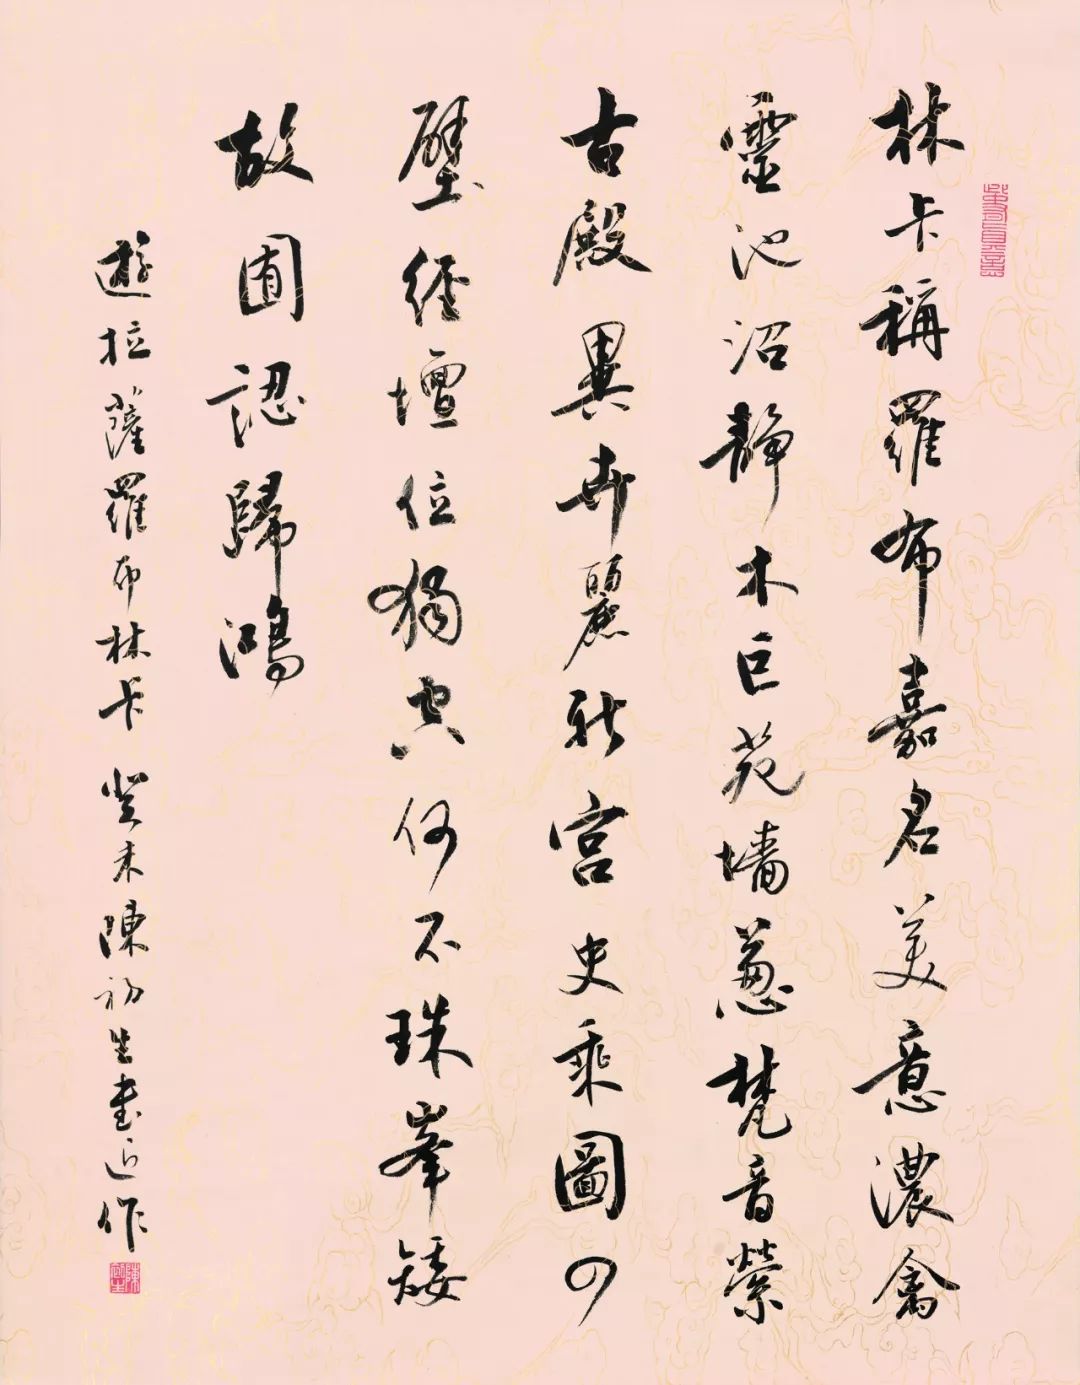 林卡稱羅布嘉名美意濃禽
靈池沼靜木巨苑墻蔥梵音縈
古殿異卉麗新宮史乘圖四
壁經壇位獨空何不珠峯矮
故圃認歸鴻
遊拉薩羅布林卡 癸未陳初生書近作
陳初生